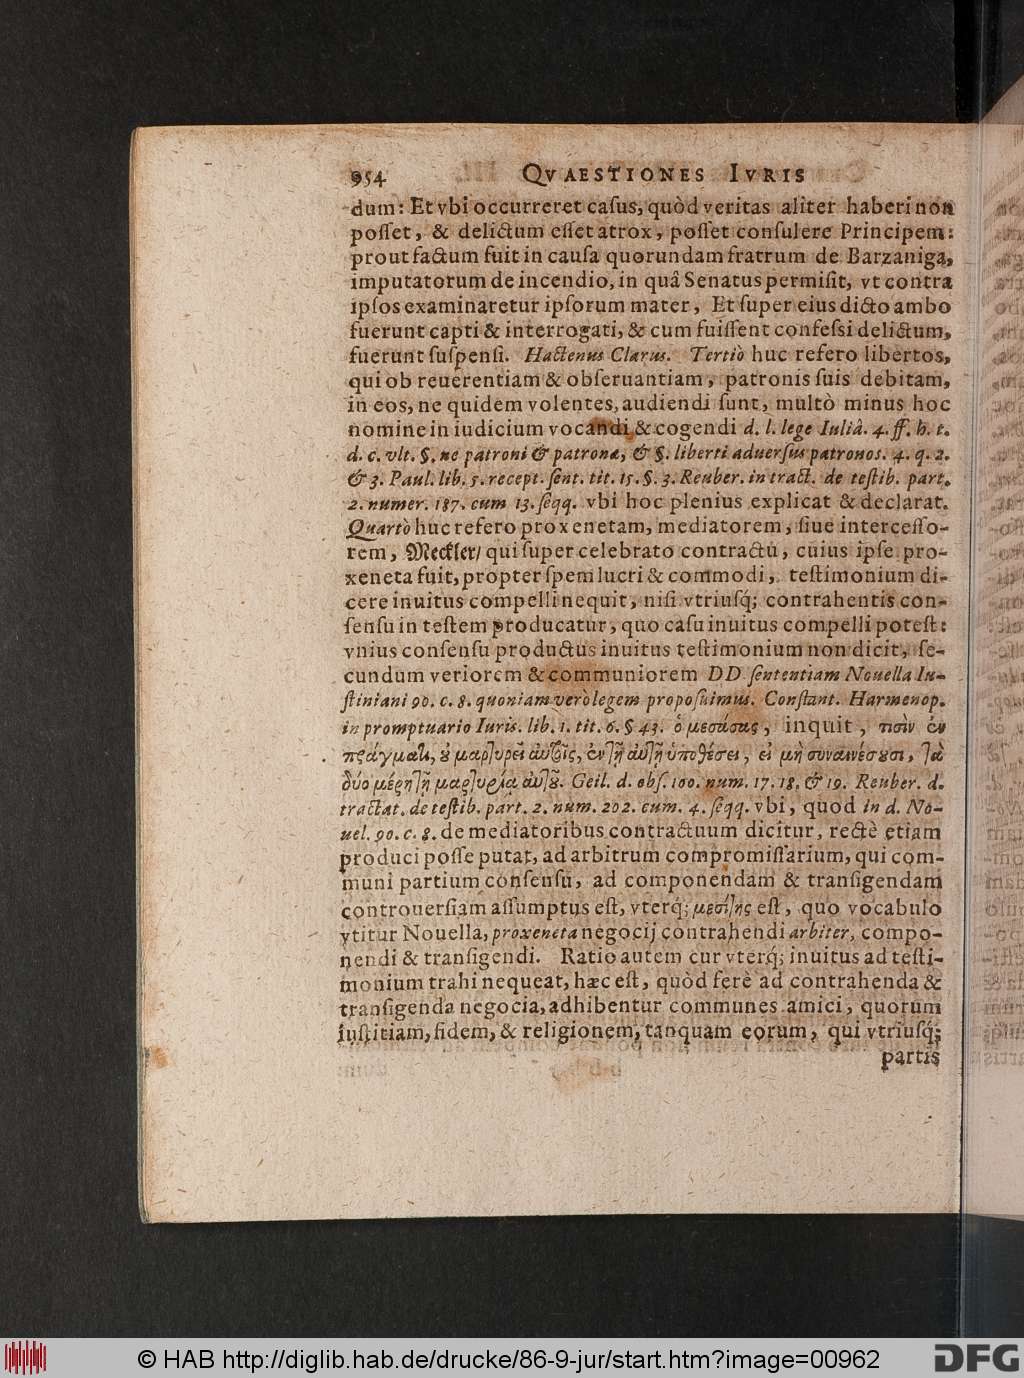 954 QVAESTIONES IVRIS
dum: Et vbi occurreret caſus, quòd veritas aliter haberi non
poſſet, & delictum eſſet atrox, poſſet conſulere Principem:
prout factum fuit in cauſa quorundam fratrum de Barzaniga,
imputatorum de incendio, in quâ Senatus permiſit, vt contra
ipſos examinaretur ipſorum mater, Et ſuper eius dicto ambo
fuerunt capti & interrogati, & cum fuiſſent confeſsi delictum,
fuerunt ſuſpenſi. Hactenus Clarus. Tertiò huc refero libertos,
qui ob reuerentiam & obſeruantiam, patronis ſuis debitam,
in eos, ne quidem volentes, audiendi ſunt, multò minus hoc
nomine in iudicium vocandi & cogendi d. l. lege Iuliâ. 4. ff. h. t.
d. c. vlt. §. ne patroni & patronæ, & §. liberti aduerſus patronos. 4. q. 2.
& 3. Paul. lib. 5. recept. ſent. tit. 15. §. 3. Reuber. in tract. de teſtib. part.
2. numer. 187. cum 13. ſeqq. vbi hoc plenius explicat & declarat.
Quartò huc refero proxenetam, mediatorem, ſiue interceſſo-
rem, Meckler/ qui ſuper celebrato contractu, cuius ipſe pro-
xeneta fuit, propter ſpem lucri & commodi, teſtimonium di-
cere inuitus compelli nequit, niſi vtriuſq́; contrahentis con-
ſenſu in teſtem producatur, quo caſu inuitus compelli poteſt:
vnius conſenſu productus inuitus teſtimonium non dicit, ſe-
cundum veriorem & communiorem DD ſententiam Nouella Iu-
ſtiniani 90. c. 8. quoniam verò legem propoſuimus. Conſtant. Harmenop.
in promptuario Iuris. lib. 1. tit. 6. § 43. ὁ μεσάσας, inquit, τισὶν ἐν
πράγμασι, οὐ μαρτυρεῖ αὐτοῖς, ἐν τῇ αὐτῇ ὑποθέσει, εἰ μὴ συναινέσουσι, τὰ
δύο μέρη τῇ μαρτυρίᾳ αὐτοῦ. Geil. d. obſ. 100. num. 17. 18. & 19. Reuber. d.
tractat. de teſtib. part. 2. num. 202. cum. 4. ſeqq. vbi, quod in d. No-
uel. 90. c. 8. de mediatoribus contractuum dicitur, rectè etiam
produci poſſe putat, ad arbitrum compromiſſarium, qui com-
muni partium conſenſu, ad componendam & tranſigendam
controuerſiam aſſumptus eſt, vterq́; μεσίτης eſt, quo vocabulo
vtitur Nouella, proxeneta negocij contrahendi arbiter, compo-
nendi & tranſigendi. Ratio autem cur vterq́; inuitus ad teſti-
monium trahi nequeat, hæc eſt, quòd ferè ad contrahenda &
tranſigenda negocia, adhibentur communes amici, quorum
iuſtitiam, fidem, & religionem, tanquam eorum, qui vtriuſq́;
partis
© HAB http://diglib.hab.de/drucke/86-9-jur/start.htm?image=00962
DFG